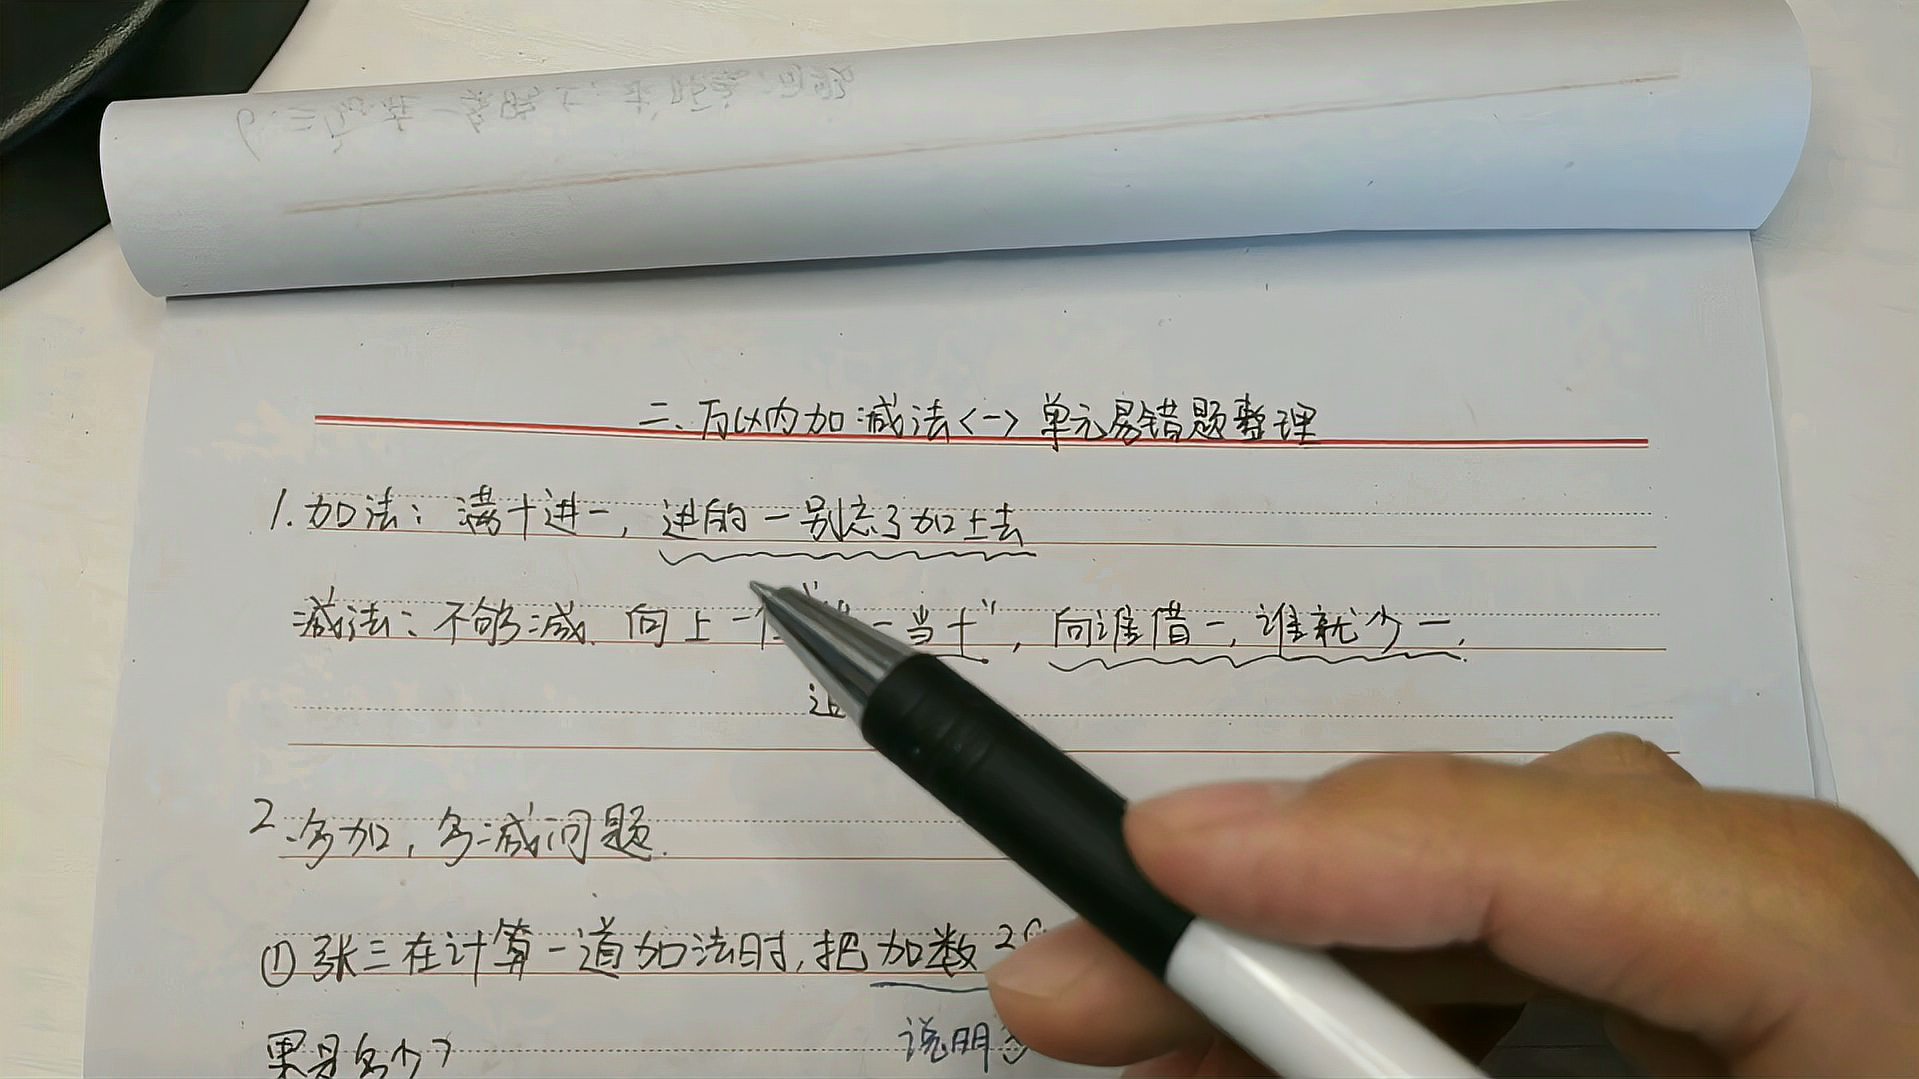 二、万以内加减法<一> 单元易错题整理
1.加法：满十进一，进的一别忘了加上去
减法：不够减 向上一 一当十”，向谁借一，谁就少一，
2.多加，多减问题.
①张三在计算一道加法时,把加数2
果是多少?
说明